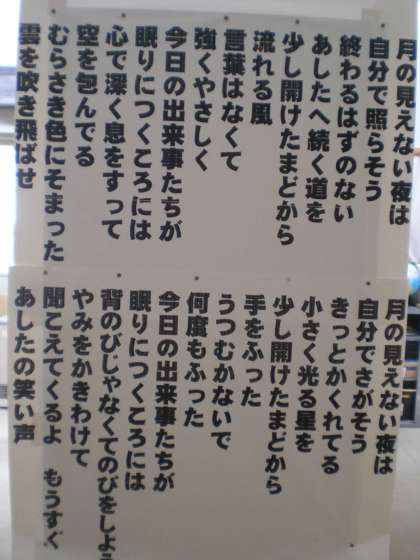 月の見えない夜は
自分で照らそう
終わるはずのない
あしたへ続く道を
少し開けたまどから
流れる風
言葉はなくて
強くやさしく
今日の出来事たちが
眠りにつくころには
心で深く息をすって
空を包んでる
むらさき色にそまった
雲を吹き飛ばせ
月の見えない夜は
自分でさがそう
きっとかくれてる
小さく光る星を
少し開けたまどから
手をふった
うつむかないで
何度もふった
今日の出来事たちが
眠りにつくころには
背のびじゃなくてのびをしよう
やみをかきわけて
聞こえてくるよ　もうすぐ
あしたの笑い声